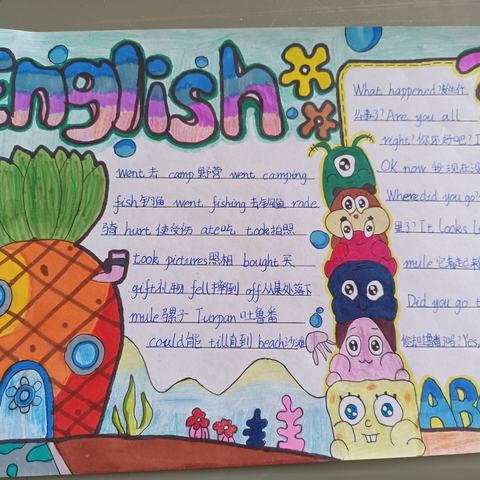 English
went去 camp野营 went camping
fish钓鱼 went fishing去钓鱼 rode
骑 hurt 使受伤 ate吃 took拍照
took pictures照相 bought买
gift礼物 fell摔倒 off从某处落下
mule骡子 Turpan 吐鲁番
could能 till直到 beach沙滩
What happened发生什
么事了? Are you all
right? 你还好吧? I
OK now 我现在没
Where did you go?
里了? It Looks L
mule 它看起
Did you go t
你去吐鲁番了吗? Yes,
AB